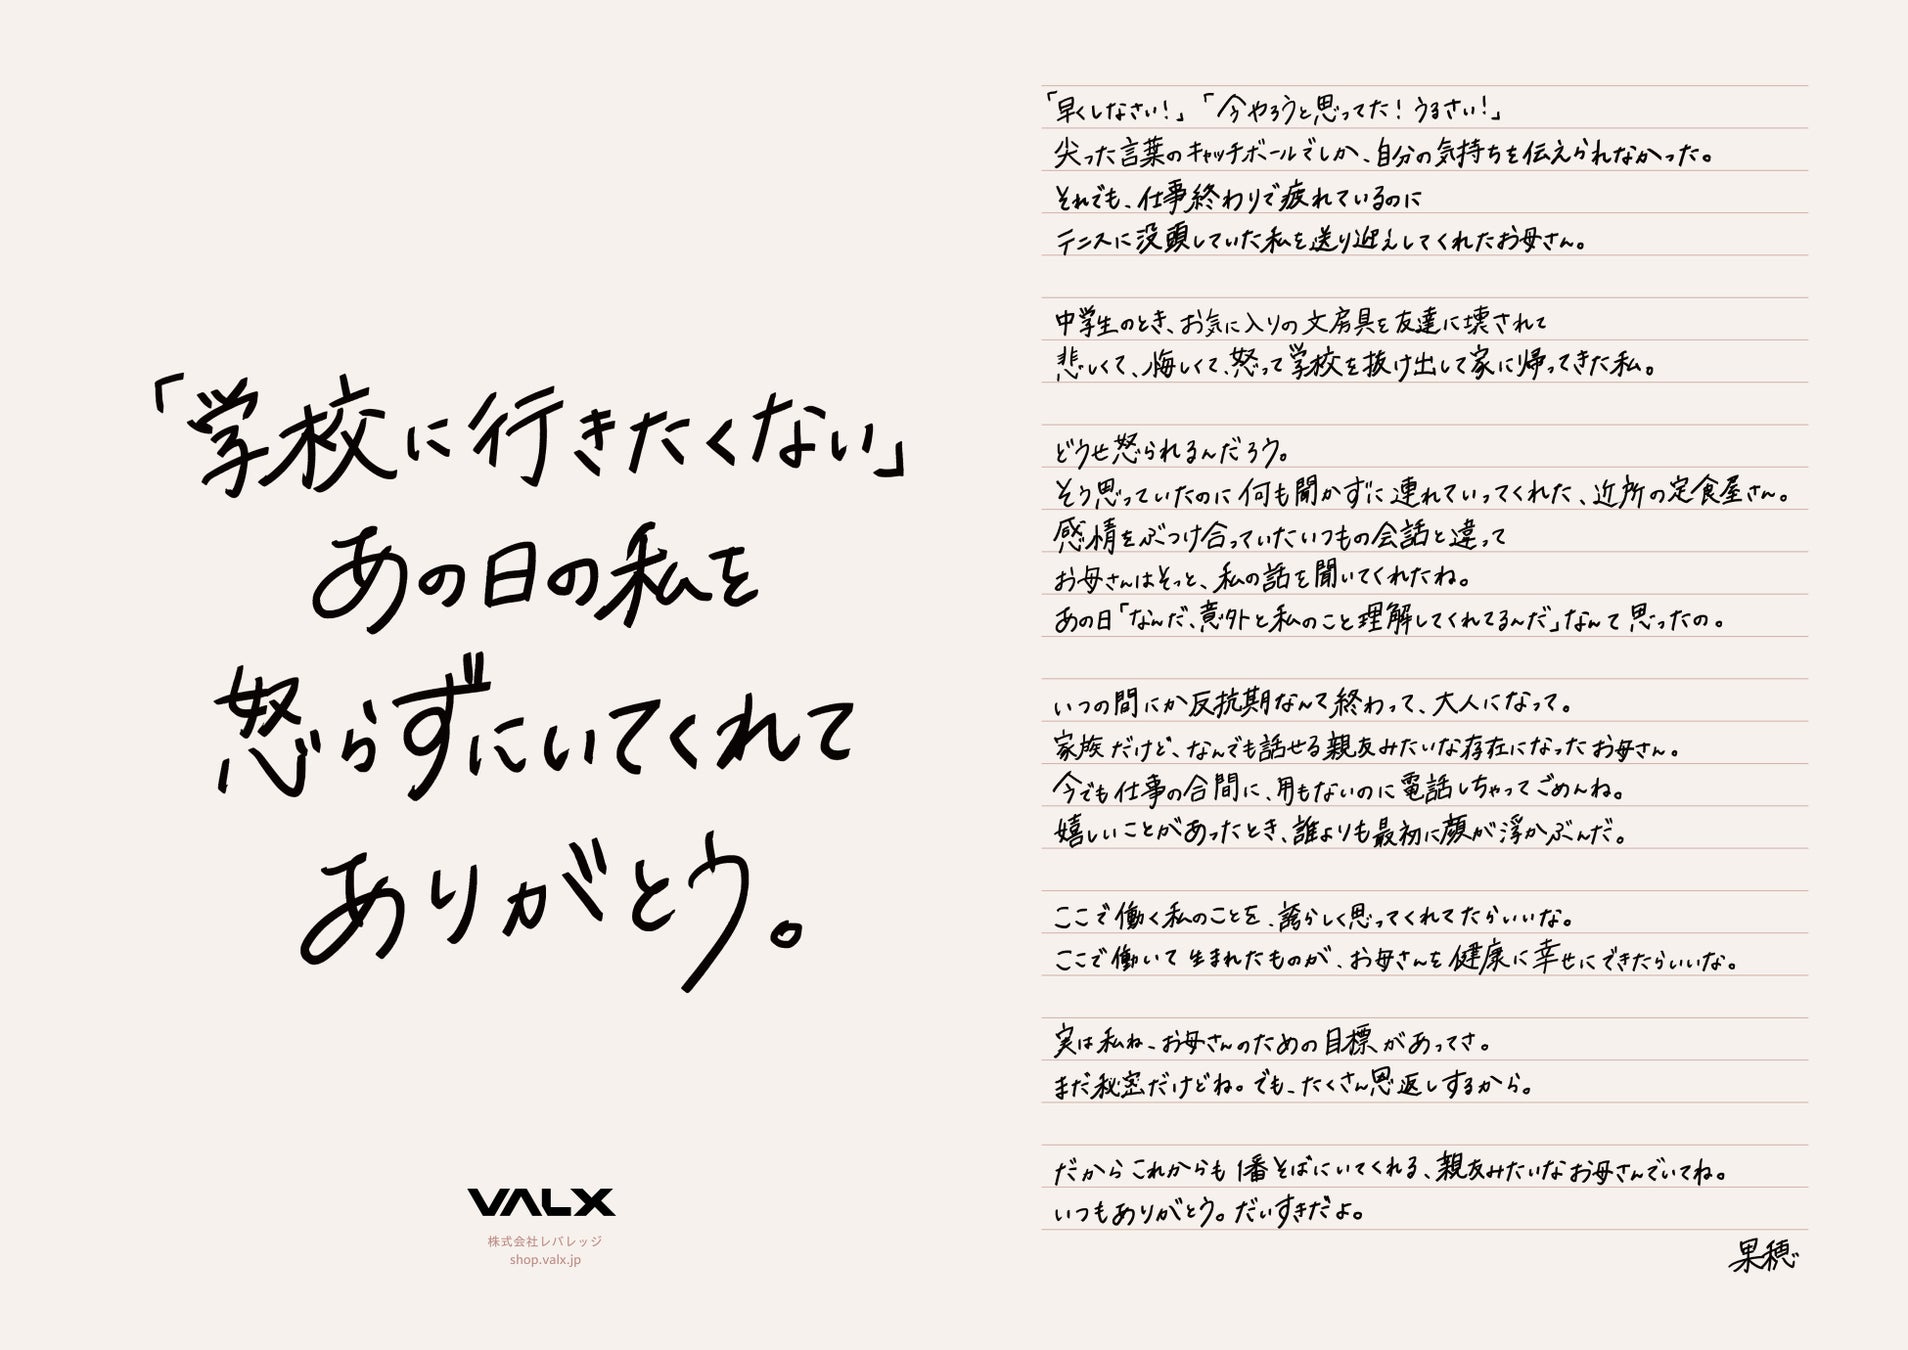 「学校に行きたくない」
あの日の私を
怒らずにいてくれて
ありがとう。
VALX
株式会社レバレッジ
shop.valx.jp
「早くしなさい!」「今やろうと思ってた!うるさい!」
尖った言葉のキャッチボールでしか、自分の気持ちを伝えられなかった。
それでも、仕事終わりで疲れているのに
テニスに没頭していた私を送り迎えしてくれたお母さん。
中学生のとき、お気に入りの文房具を友達に壊されて
悲しくて、悔しくて、怒って学校を抜け出して家に帰ってきた私。
どうせ怒られるんだろう。
そう思っていたのに何も聞かずに連れていってくれた、近所の定食屋さん。
感情をぶつけ合っていたいつもの会話と違って
お母さんはそっと、私の話を聞いてくれたね。
あの日「なんだ、意外と私のこと理解してくれてるんだ」なんて思ったの。
いつの間にか反抗期なんて終わって、大人になって。
家族だけど、なんでも話せる親友みたいな存在になったお母さん。
今でも仕事の合間に、用もないのに電話しちゃってごめんね。
嬉しいことがあったとき、誰よりも最初に顔が浮かぶんだ。
ここで働く私のことを、誇らしく思ってくれてたらいいな。
ここで働いて生まれたものが、お母さんを健康に幸せにできたらいいな。
実は私ね、お母さんのための目標があってさ。
まだ秘密だけどね。でも、たくさん恩返しするから。
だからこれからも1番そばにいてくれる、親友みたいなお母さんでいてね。
いつもありがとう。だいすきだよ。
果穂